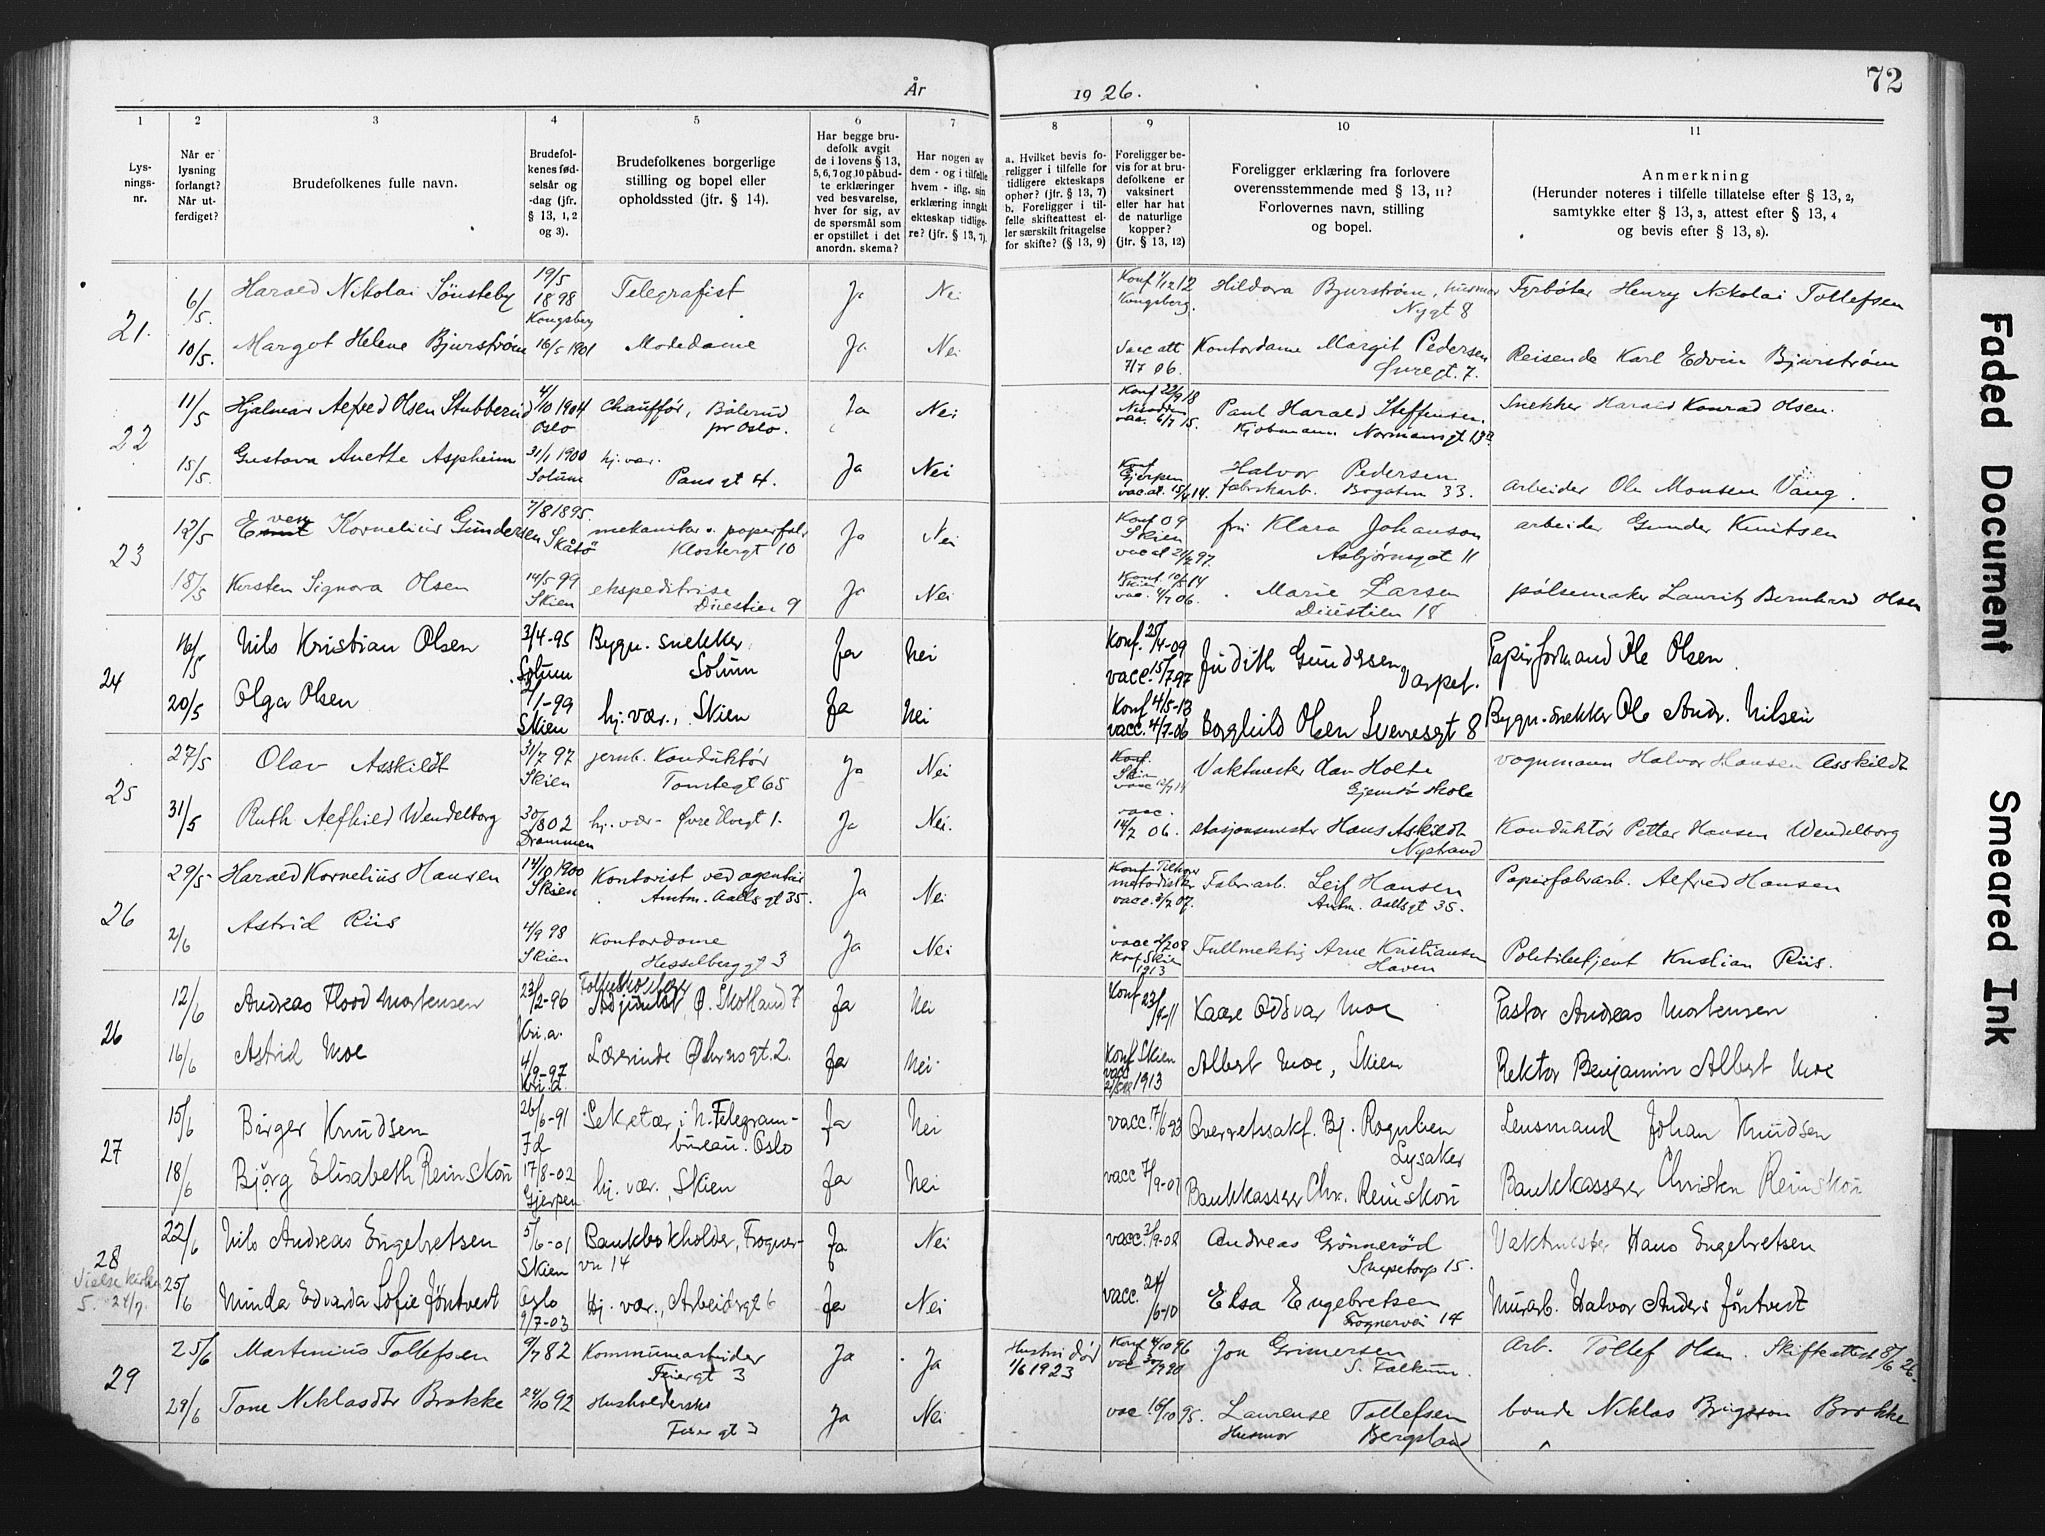 År 1926.
72
1 2 3 4 5 6 7 8 9 10 11
Lys-
nings-
nr.
Når er
lysning
forlangt?
Når ut-
ferdiget?
Brudefolkenes fulle navn.
Brudefol-
kenes fød-
selsår og
-dag (jfr.
§ 13, 1, 2
og 3).
Brudefolkenes borgerlige
stilling og bopel eller
opholdssted (jfr. § 14).
Har begge bru-
defolk avgit
de i lovens § 13,
5, 6, 7 og 10 påbud-
te erklæringer
ved besvarelse,
hver for sig, av
de spørsmål som
er opstillet i det
anordn. skema?
Har nogen av
dem - og i tilfelle
hvem - iflg. sin
erklæring inngåt
ekteskap tidlige-
re? (jfr. § 13, 7).
a. Hvilket bevis fo-
religger i tilfelle for
tidligere ekteskaps
ophør? (jfr. § 13, 7)
b. Foreligger i til-
felle skifteattest el-
ler særskilt fritagelse
for skifte? (§ 13, 9)
Foreligger be-
vis for at bru-
defolkene er
vaksinert
eller har hat
de naturlige
kopper?
(jfr. § 13, 12)
Foreligger erklæring fra forlovere
overensstemmende med § 13, 11?
Forlovernes navn, stilling
og bopel.
Anmerkning
(Herunder noteres i tilfelle tillatelse efter § 13, 2,
samtykke efter § 13, 3, attest efter § 13, 4
og bevis efter § 13, 8).
21.
6/5. Harald Nikolai Sønsteby 19/5 1898 Kongsberg Telegrafist Ja Nei Konf 1/12 12 Kongsberg. Hildora Bjurstrøm, husmor Nygt 8 Fyrbøter Henry Nikolai Tollefsen
10/5. Margot Helene Bjurstrøm 16/5 1901 Motedame Ja Nei Vacc att 7/7 06. Kontordame Margit Pedersen Øvregt. 7. Reisende Karl Edvin Bjurstrøm
22
11/5 Hjalmar Alfred Olsen Stubberud 4/10 1904 Oslo Chauffør, Bålerud pr Oslo. Ja Nei Konf 22/9 18 vacc. 6/7 15. Paul Harald Steffensen. Kjøbmann Normannsgt 13a Snekker Harald Konrad Olsen.
15/5. Gustava Anette Aspheim 31/1 1900 Solum hj. vær. Pansgt 4. Ja Nei Konf Gjerpen vac. at. 15/6 14. Halvor Pedersen fabrikarb. Bogaten 33. arbeider Ole Monsen Vang.
23
12/5 Even Kornelius Gundersen 7/8 1895. Skåtø mekaniker v. papirfabr Klostergt 10 Ja Nei Konf 09 Skien vac at 21/2 97. fru Klara Johanson Asbjørnsgt 11 arbeider Gunder Knutsen
18/5 Kirsten Signora Olsen 14/5 99 Skien ekspeditrise Duestien 9 Ja Nei Konf 10/5 14 Skien vac. 4/7 06. Marie Larsen Duestien 18 pølsemaker Lauritz Bernhard Olsen
24
16/5 Nils Kristian Olsen 3/4-95 Solum Bygn. snekker Solum Ja Nei Konf. 25/4-09 vacc. 15/7 97 Judith Gundersen Varpet. Papirformand Ole Olsen.
20/5 Olga Olsen 2/1-99 Skien hj. vær., Skien Ja Nei Konf 4/5-13 vacc. 4/7-06 Borghild Olsen Sverresgt 8 Bygn. snekker Ole Andr. Nilsen
25
27/5 Olav Asskildt 31/7 97 Skien jernb. Konduktør Tomtegt 65 Ja Nei Konf. Skien vacc Vaktmester Olav Holte Gjemsø skole vognmann Halvor Hansen Asskildt
31/5 Ruth Alfhild Wendelborg 30/8 02 Drammen hj. vær - Øvre Elvegt 1. Ja Nei. vacc. 14/7 06. stasjonsmester Hans Askildt Nystrand Konduktør Petter Hansen Wendelborg
26
29/5- Harald Kornelius Hansen 14/10 1900 Skien Kontorist ved agentur Amtm. Aallsgt 35. Ja Nei Konf. metodistk vacc. 3/7 07. Fabrarb. Leif Hansen Amtm. Aallsgt 35. Papirfabrarb. Alfred Hansen
2/6 Astrid Riis 4/9 98 Skien Kontordame Hesselberggt 3 Ja Nei vacc 2/7 08 Konf Skien 1913 Fullmektig Arne Kristiansen Haven Politibetjent Kristian Riis.
26
12/6 Andreas Flood Mortensen 23/2-96 Kri.a. Adjunkt Ø. Skotland 7 Ja Nei Konf 23/4-11 Kaare Oddvar Moe Pastor Andreas Mortensen
16/6 Astrid Moe 4/9-97 Kri.a. Lærerinde Øhrnsgt. 2. Ja Nei Konf Skien vacc 1913 Albert Moe, Skien Rektor Benjamin Albert Moe
27
15/6 Birger Knudsen 26/6-91 Sekretær i N. Telegram-bureau. Oslo Ja Nei vacc. 7/6-93 Overretssakf. Bj. Rognlien Lysaker Lensmand Johan Knudsen
18/6 Bjørg Elisabeth Reinskou 17/8-02 Gjerpen hj. vær., Skien Ja Nei vacc 7/9-07 Bankkasserer Chr. Reinskou Bankkasserer Christen Reinskou
28
22/6 Nils Andreas Engebretsen 5/6-01 Skien Bankbokholder, Frogner-vn 14 Ja Nei vacc. 3/9-08 Andreas Grønnerød Snipetorp 15. Vaktmester Hans Engebretsen
25/6 Minda Edvarda Sofie Jøntvedt Oslo 9/7-03 Hj. vær., Arbeidergt 6 Ja Nei vacc. 24/6-10 Elsa Engebretsen Frognervei 14 Murarb. Halvor Anders Jøntvedt
29
25/6 Martinius Tollefsen 9/7 82 Kommunearbeider Feiergt 3 Ja Ja Hustru død 1/6 1923 Konf 4/10 96 vac 30/9 90 Jon Grimersen S. Falkum. Arb. Tollef Olsen. Skifteattest 8/6 26.
28/6 Tone Niklasdtr Brokke 24/10 92 Husholderske Feiergt 3 Ja Nei vac 16/10 95. Laurense Tollefsen Husmor Bergsland bonde Niklas Brokke
Faded Document
Smeared Ink